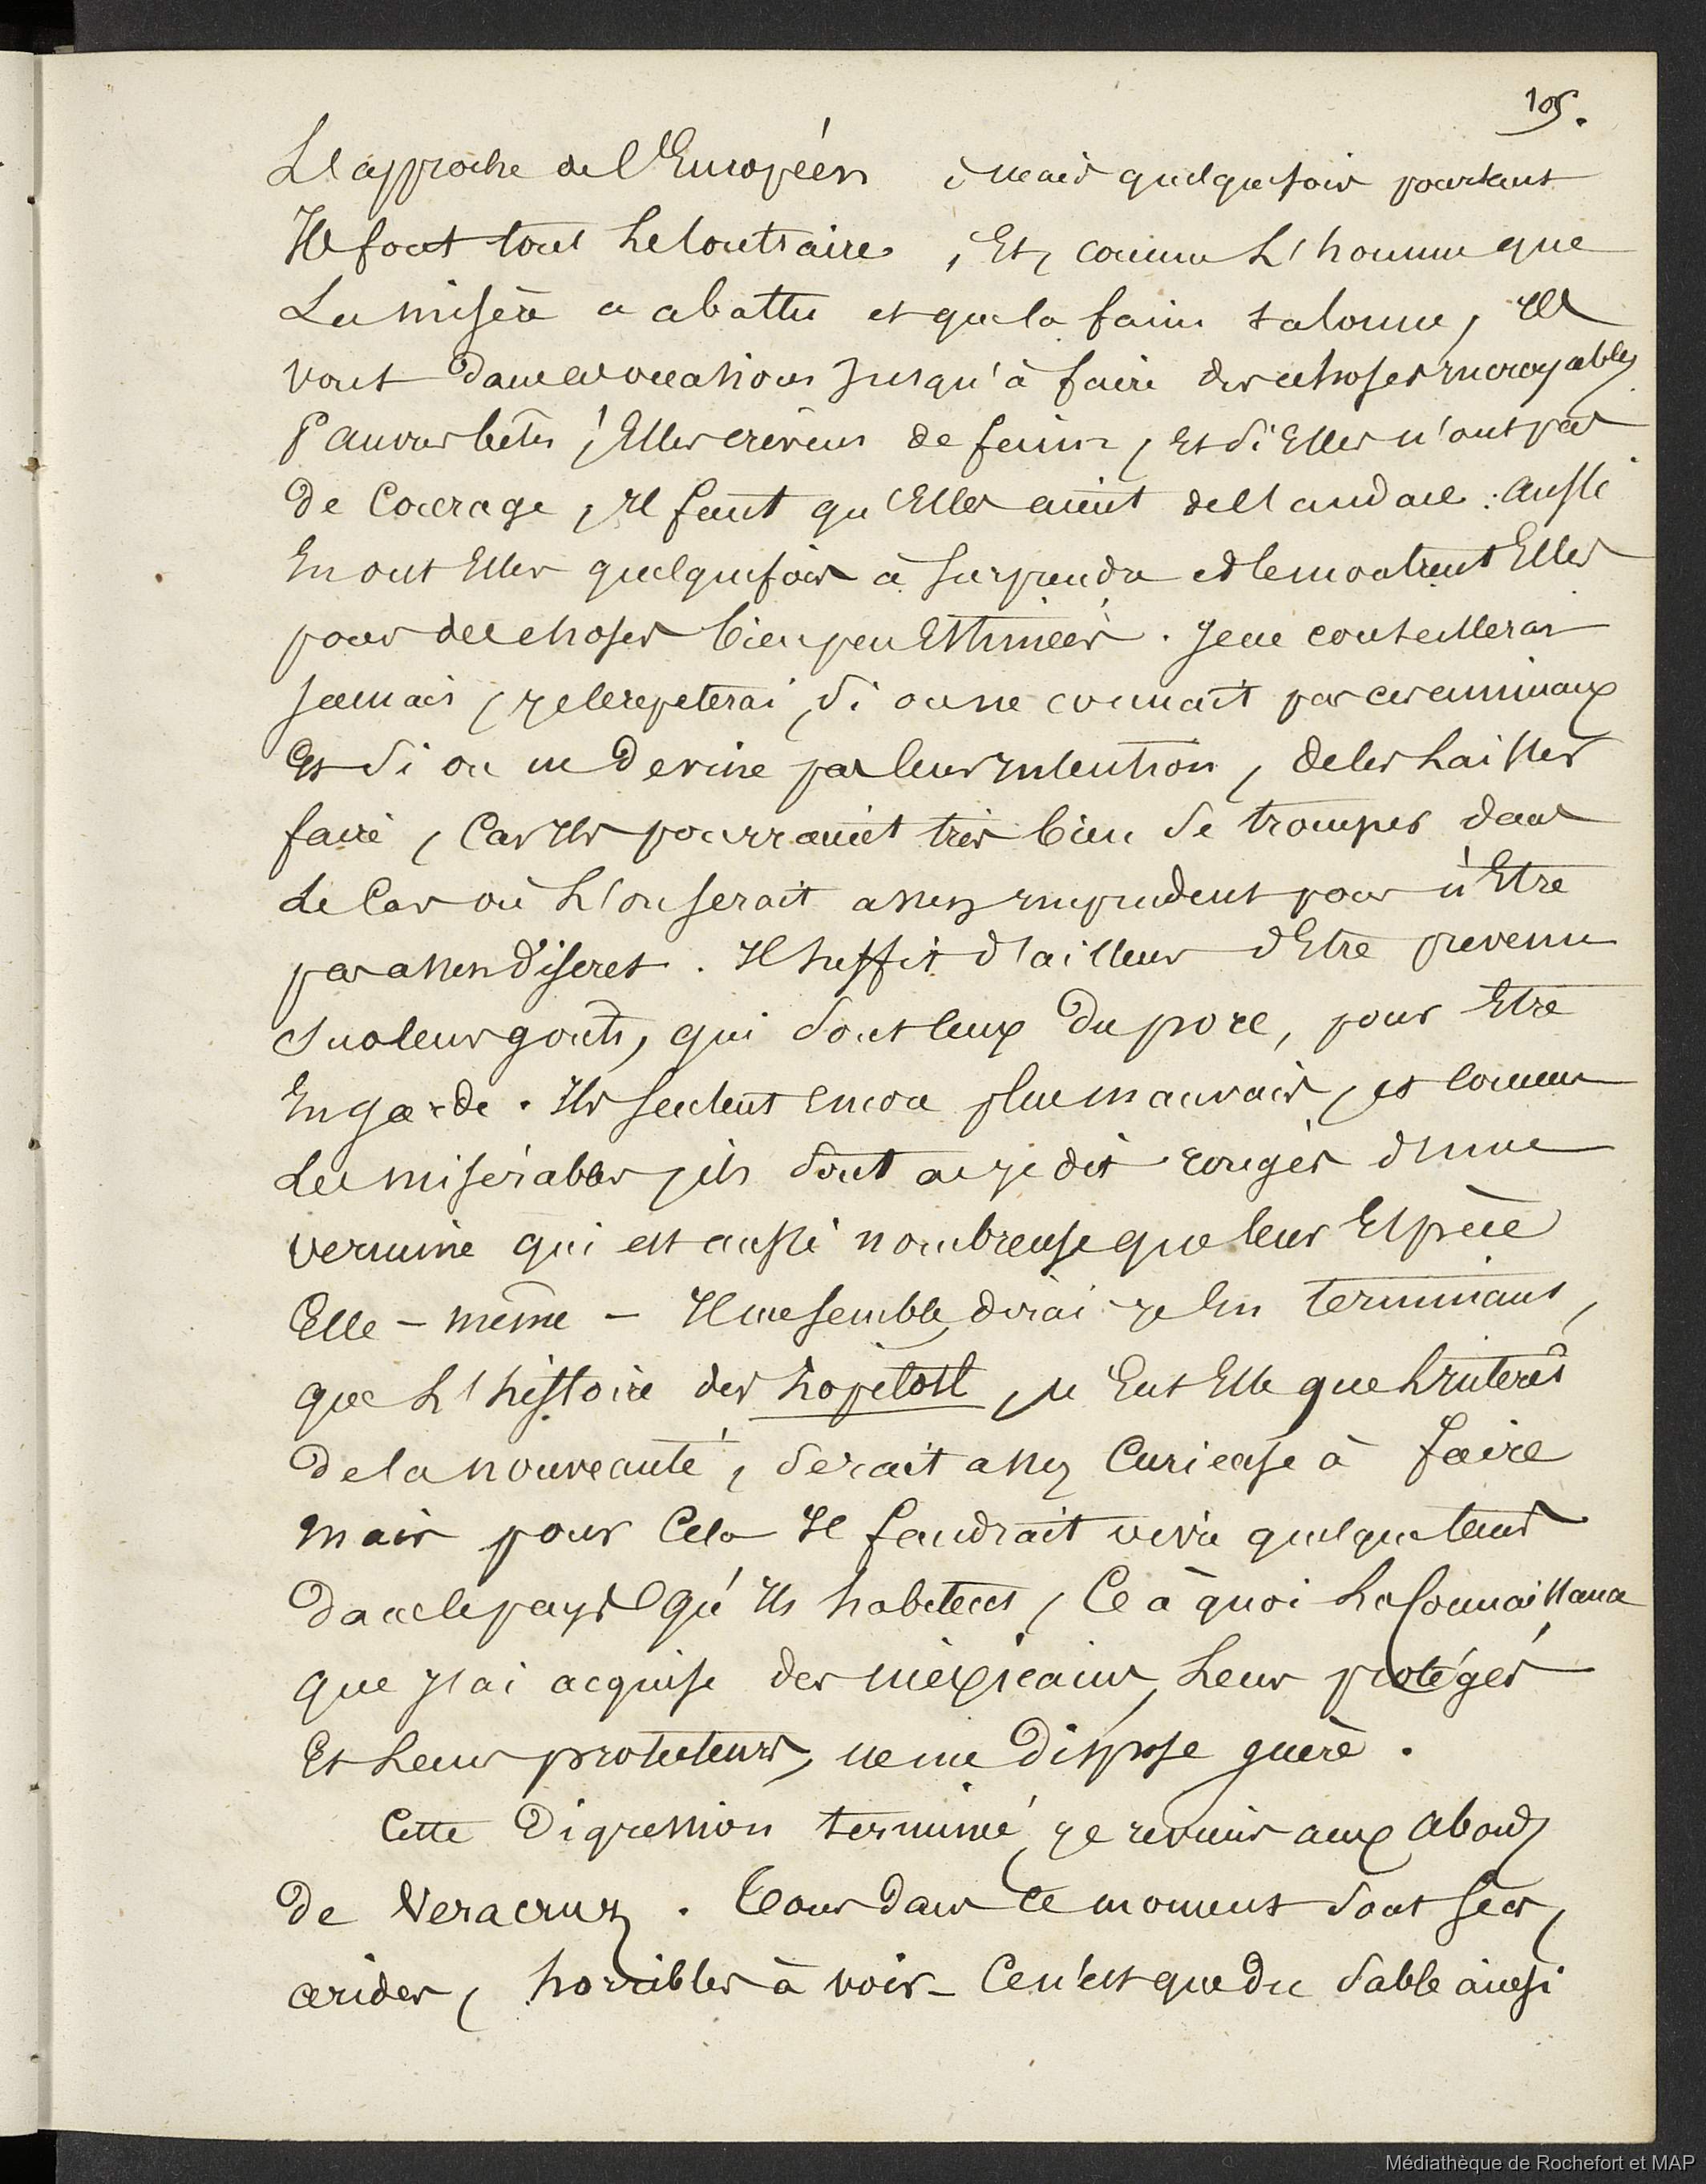 105.
L'approche de l'Européen ; mais quelquefois pourtant
Ils font tout le contraire, Et, comme L'homme que
La misère a abattu et que la faim talonne, Ils
vont dans ces occasions jusqu'à faire des choses incroyables
Pauvres bêtes ! Elles crèvent de faim, Et si Elles n'ont pas
de Courage, Il faut qu'Elles aient de l'audace : aussi
En ont Elles quelquefois à surprendre et le montrent Elles
pour des choses bien peu Estimées. Je ne conseillerai
jamais, je le repeterai, si on ne connait pas ces animaux
Et si on ne devine pas leur intention, de les Laisser
faire, Car Ils pourraient très bien se tromper dans
Le Cas où L'on serait assez imprudent pour n'Etre
pas assez discret. Il suffit d'ailleurs d'Etre prevenu
de leurs gouts, qui sont ceux du porc, pour Etre
En garde. Ils sentent encore plus mauvais, et comme
Les misérables, ils sont ai-je dit rongés d'une
vermine qui est aussi nombreuse que leur Espèce
Elle-même – Il me semble, dirai-je En terminant,
que L'histoire des Zopilotl, n'Eut Elle que L'interêt
de la nouveauté, serait assez Curieuse à faire
mais pour Cela Il faudrait vivre quelque tems
dans le pays qu'Ils habitent, Ce à quoi La Connaissance
que j'ai acquise des mexicains, Leurs protégés
Et Leurs protecteurs, ne me dispose guère.
Cette Digression terminé, je reviens aux abords
de Veracruz. Tous dans ce moment sont secs,
arides, horribles à voir – Ce n'est que du sable ainsi
Médiathèque de Rochefort et MAP